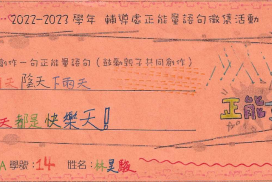 2022-2023 學年 輔導處正能量語句徵集活動
創作一句正能量語句（鼓勵親子共同創作）
天 陰天下雨天
天都是快樂天！
正能
A 學號：14 姓名：林星駿